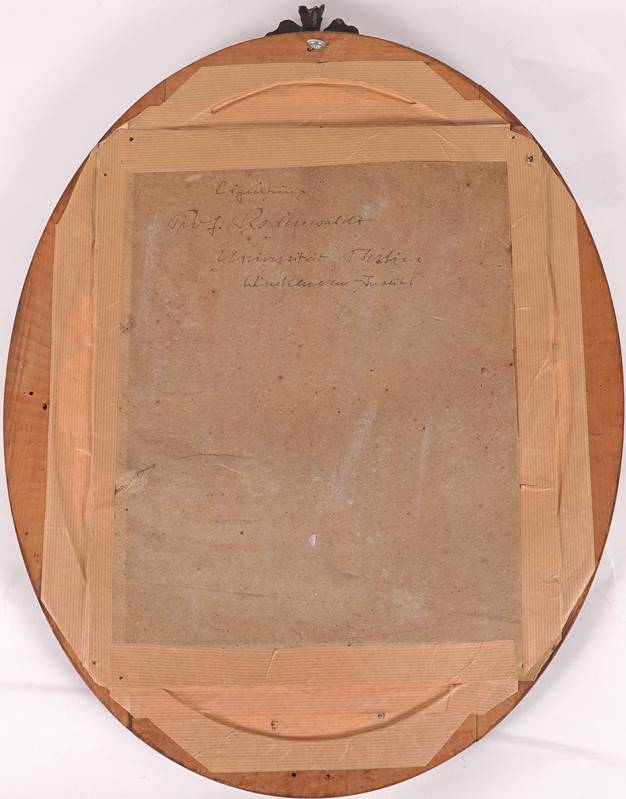 Prof. Rodenwaldt
Universität Berlin
Winckelmann-Institut